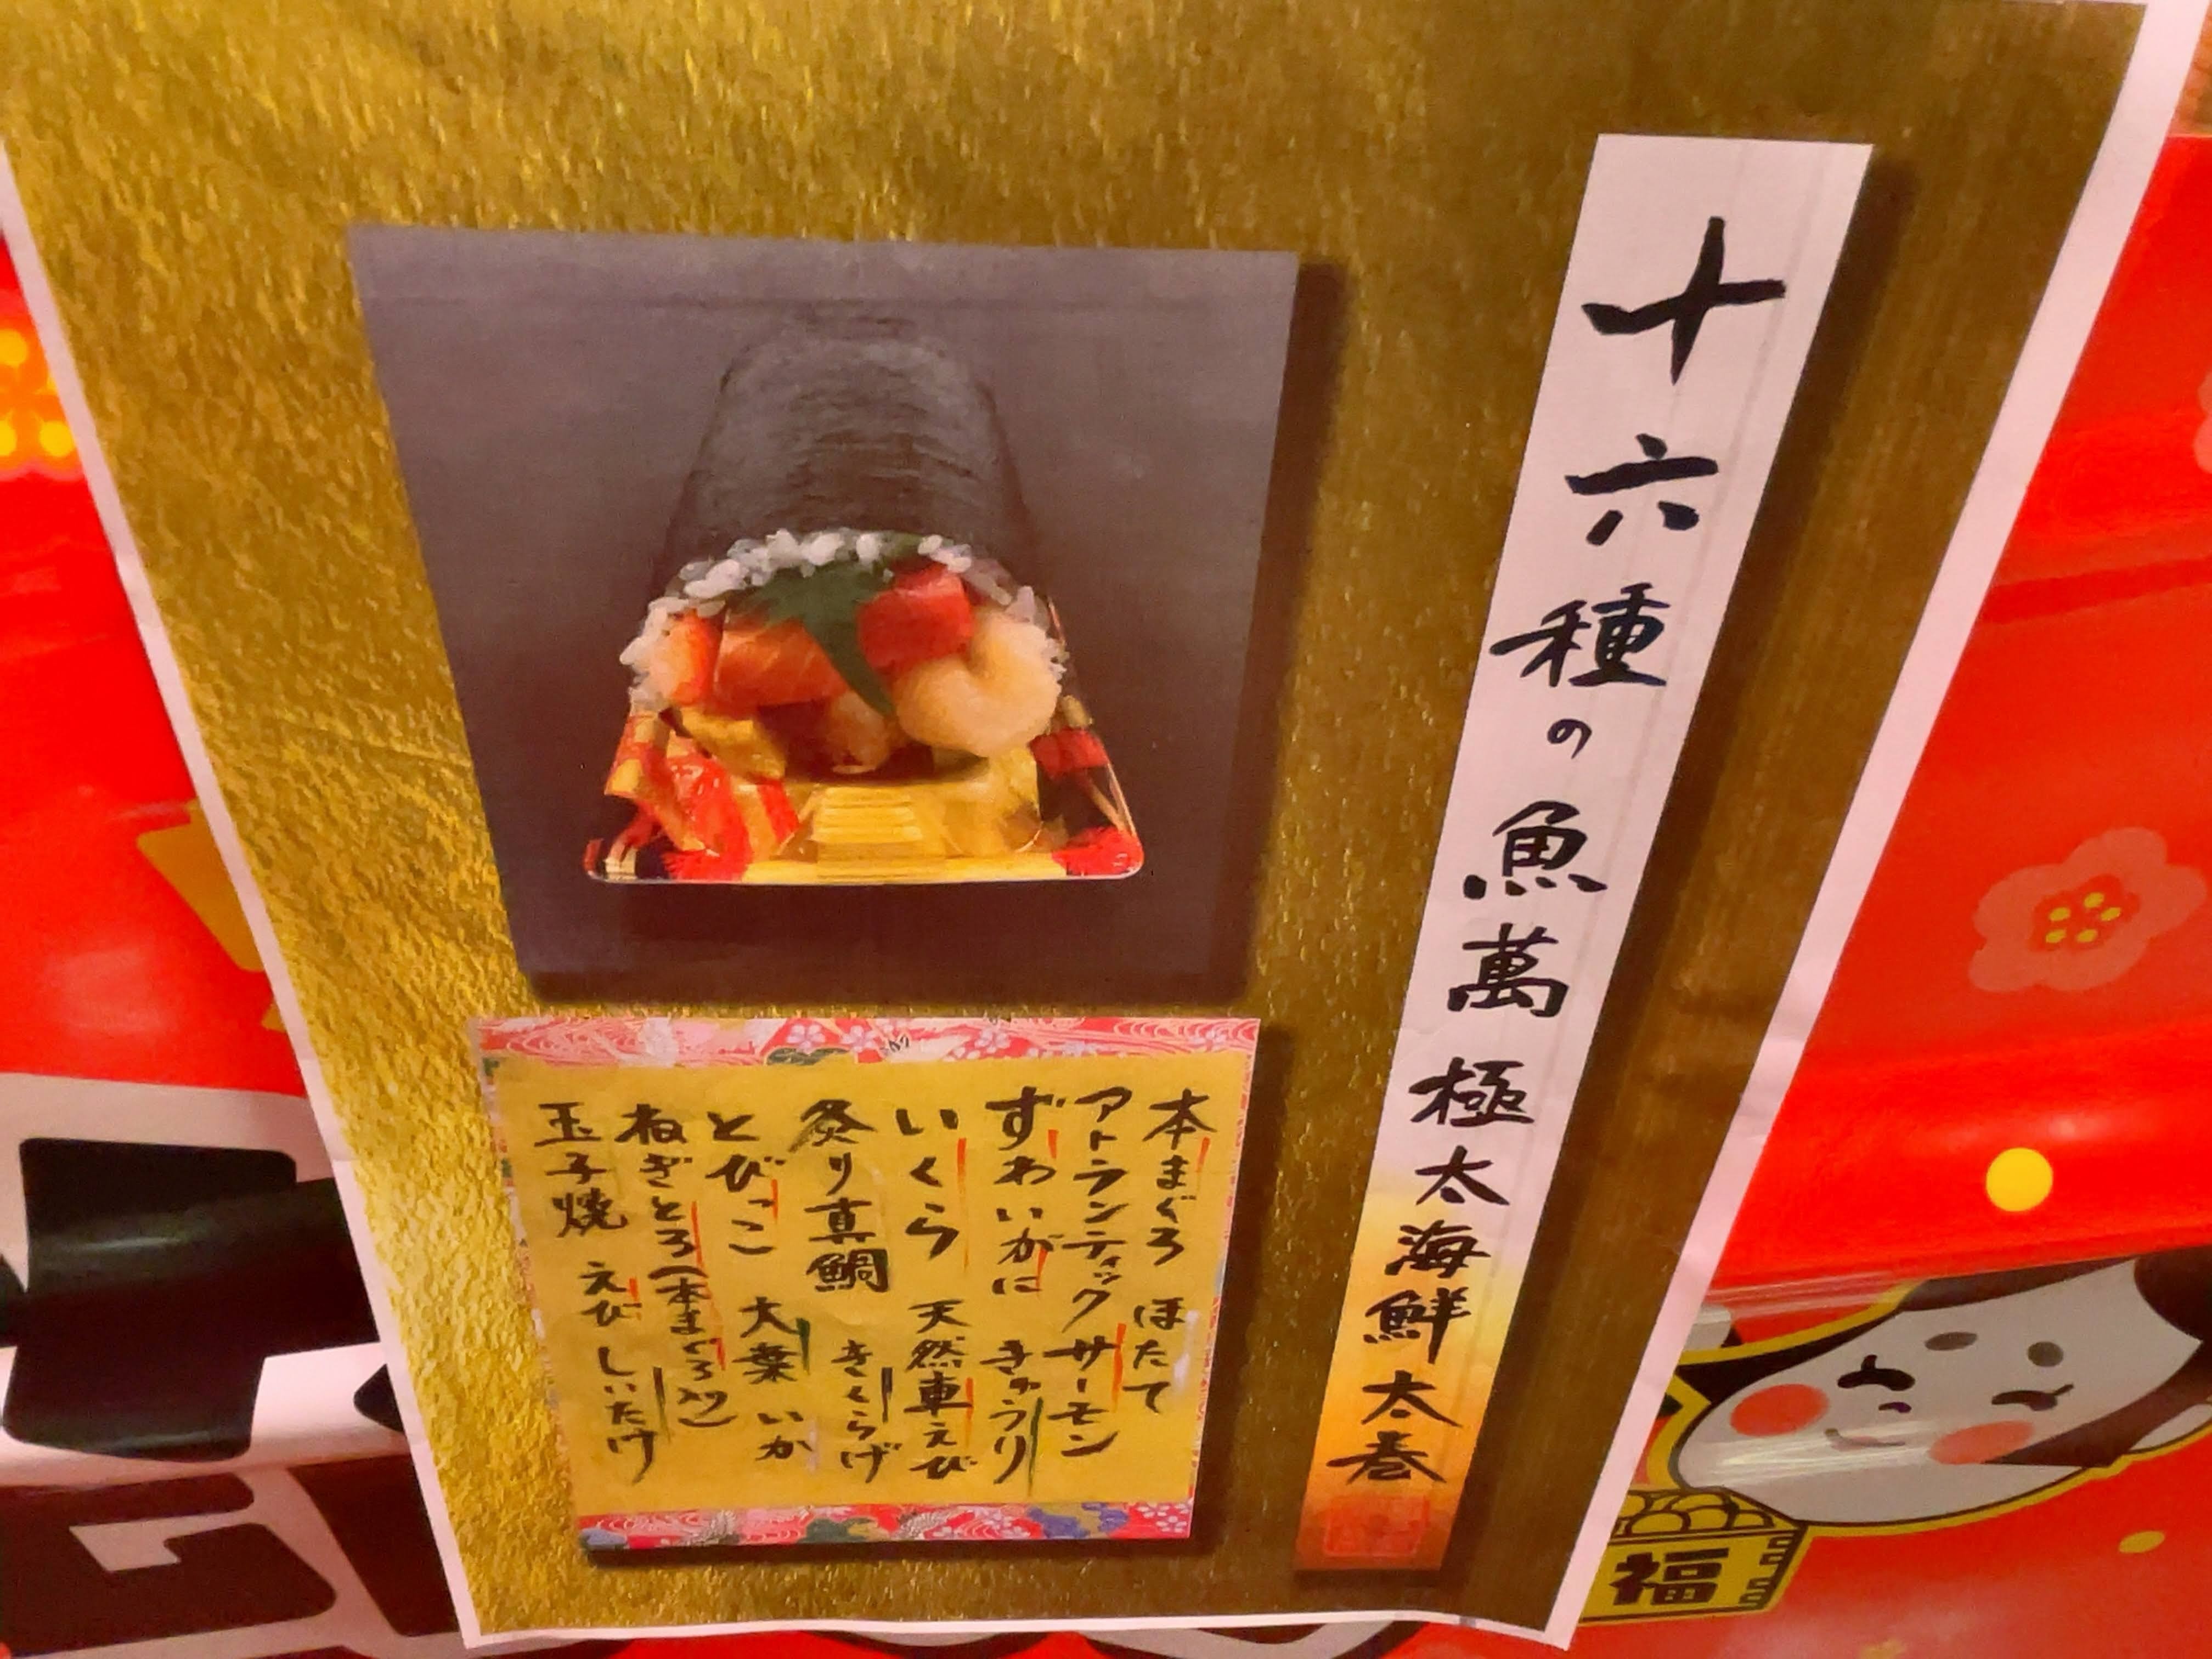 十六種の魚萬 極太海鮮太巻
本まぐろ ほたて
アトランティックサーモン
ずわいがに きゅうり
いくら 天然車えび
炙り真鯛 きくらげ
とびっこ 大葉 いか
ねぎとろ(本まぐろ入り)
玉子焼 えび しいたけ
福